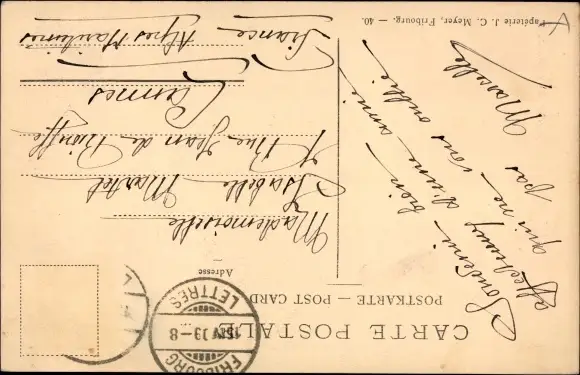 CARTE POSTALE
POSTKARTE — POST CARD
Adresse
Souvenir bien
affectueux d'une amie
qui ne vous oublie
pas
Marcelle
Mademoiselle
Isabelle Martel
Rue Jean de
Cannes
Alpes Maritimes
France
FRIBOURG
LETTRES
Papeterie J. C. Meyer, Fribourg. — 40.